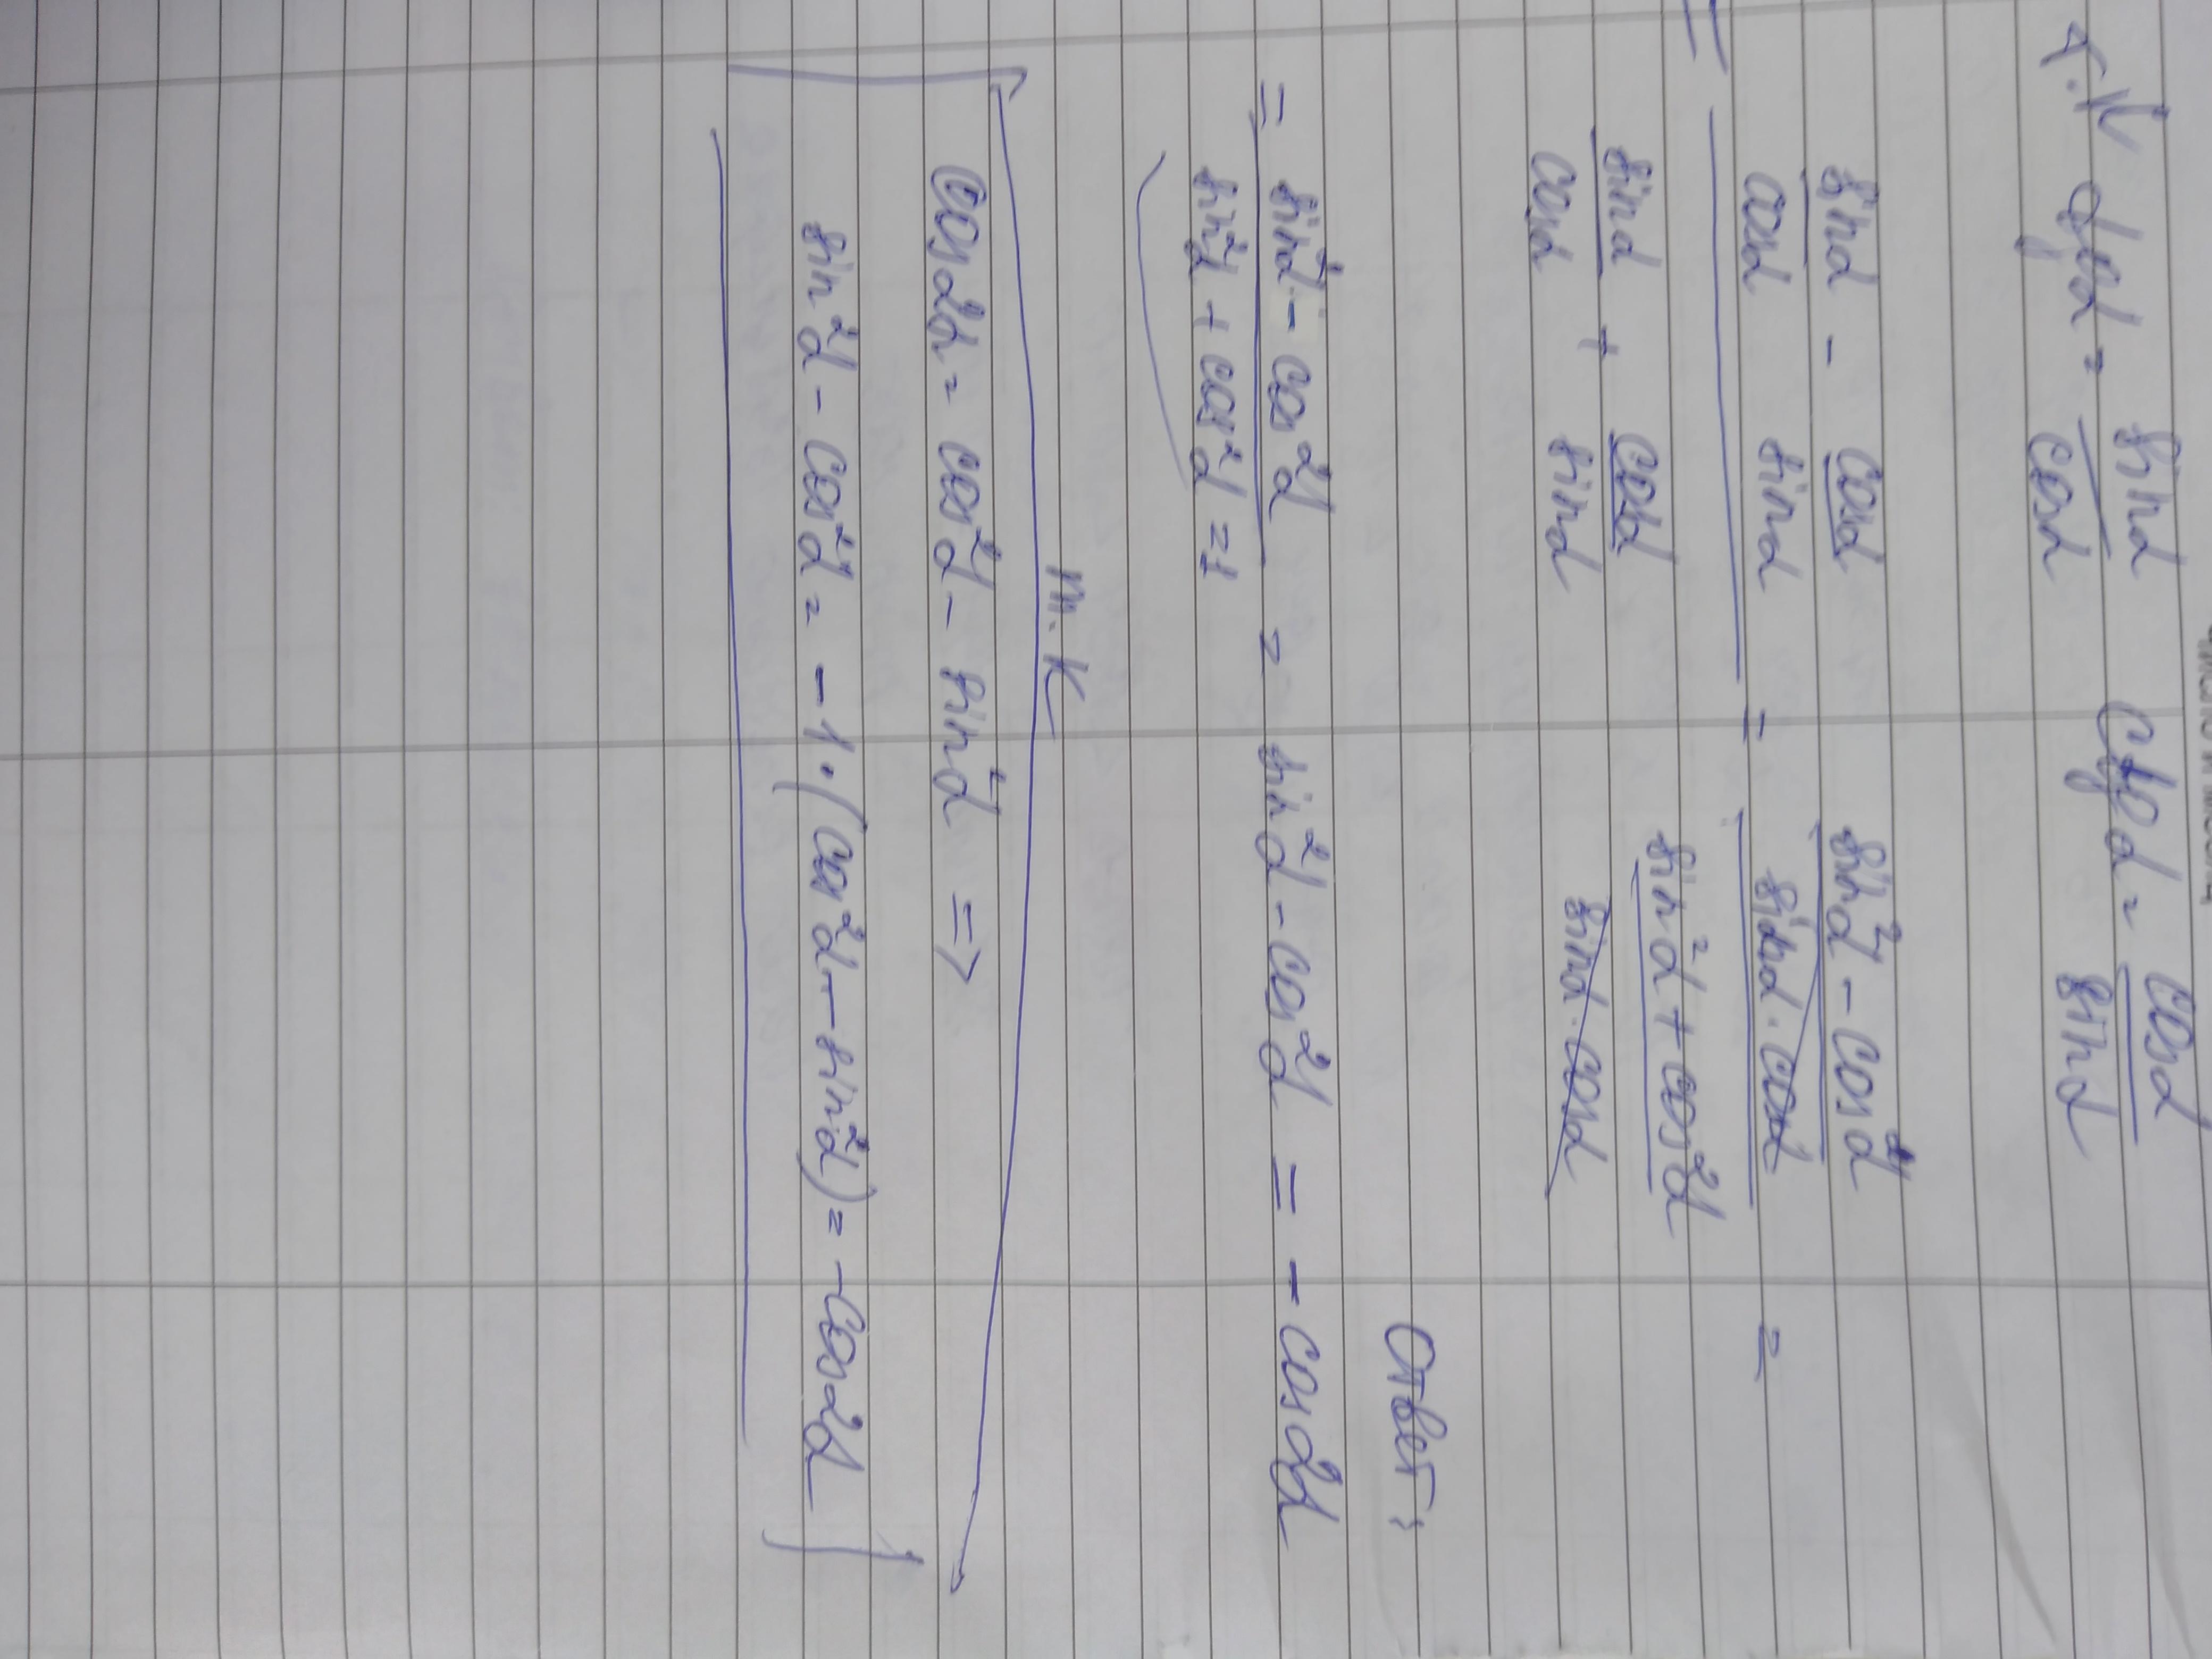 т.к tgα = sinα/cosα ctgα = cosα/sinα
= (sinα/cosα - cosα/sinα)/(sinα/cosα + cosα/sinα) = ((sin²α - cos²α)/(sinα·cosα))/((sin²α + cos²α)/(sinα·cosα)) =
Ответ:
= (sin²α - cos²α)/(sin²α + cos²α = 1) = sin²α - cos²α = - cos2α
т.к
cos2α = cos²α - sin²α =>
sin²α - cos²α = -1·(cos²α - sin²α) = -cos2α